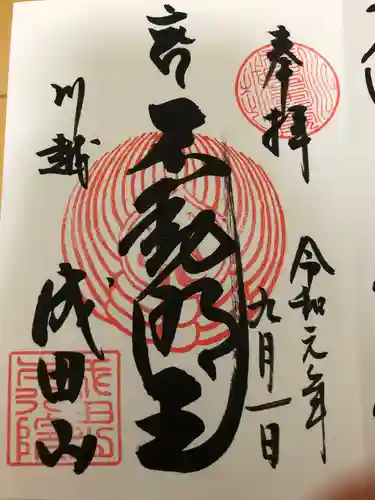 奉拝
令和元年
九月一日
不動明王
川越
成田山